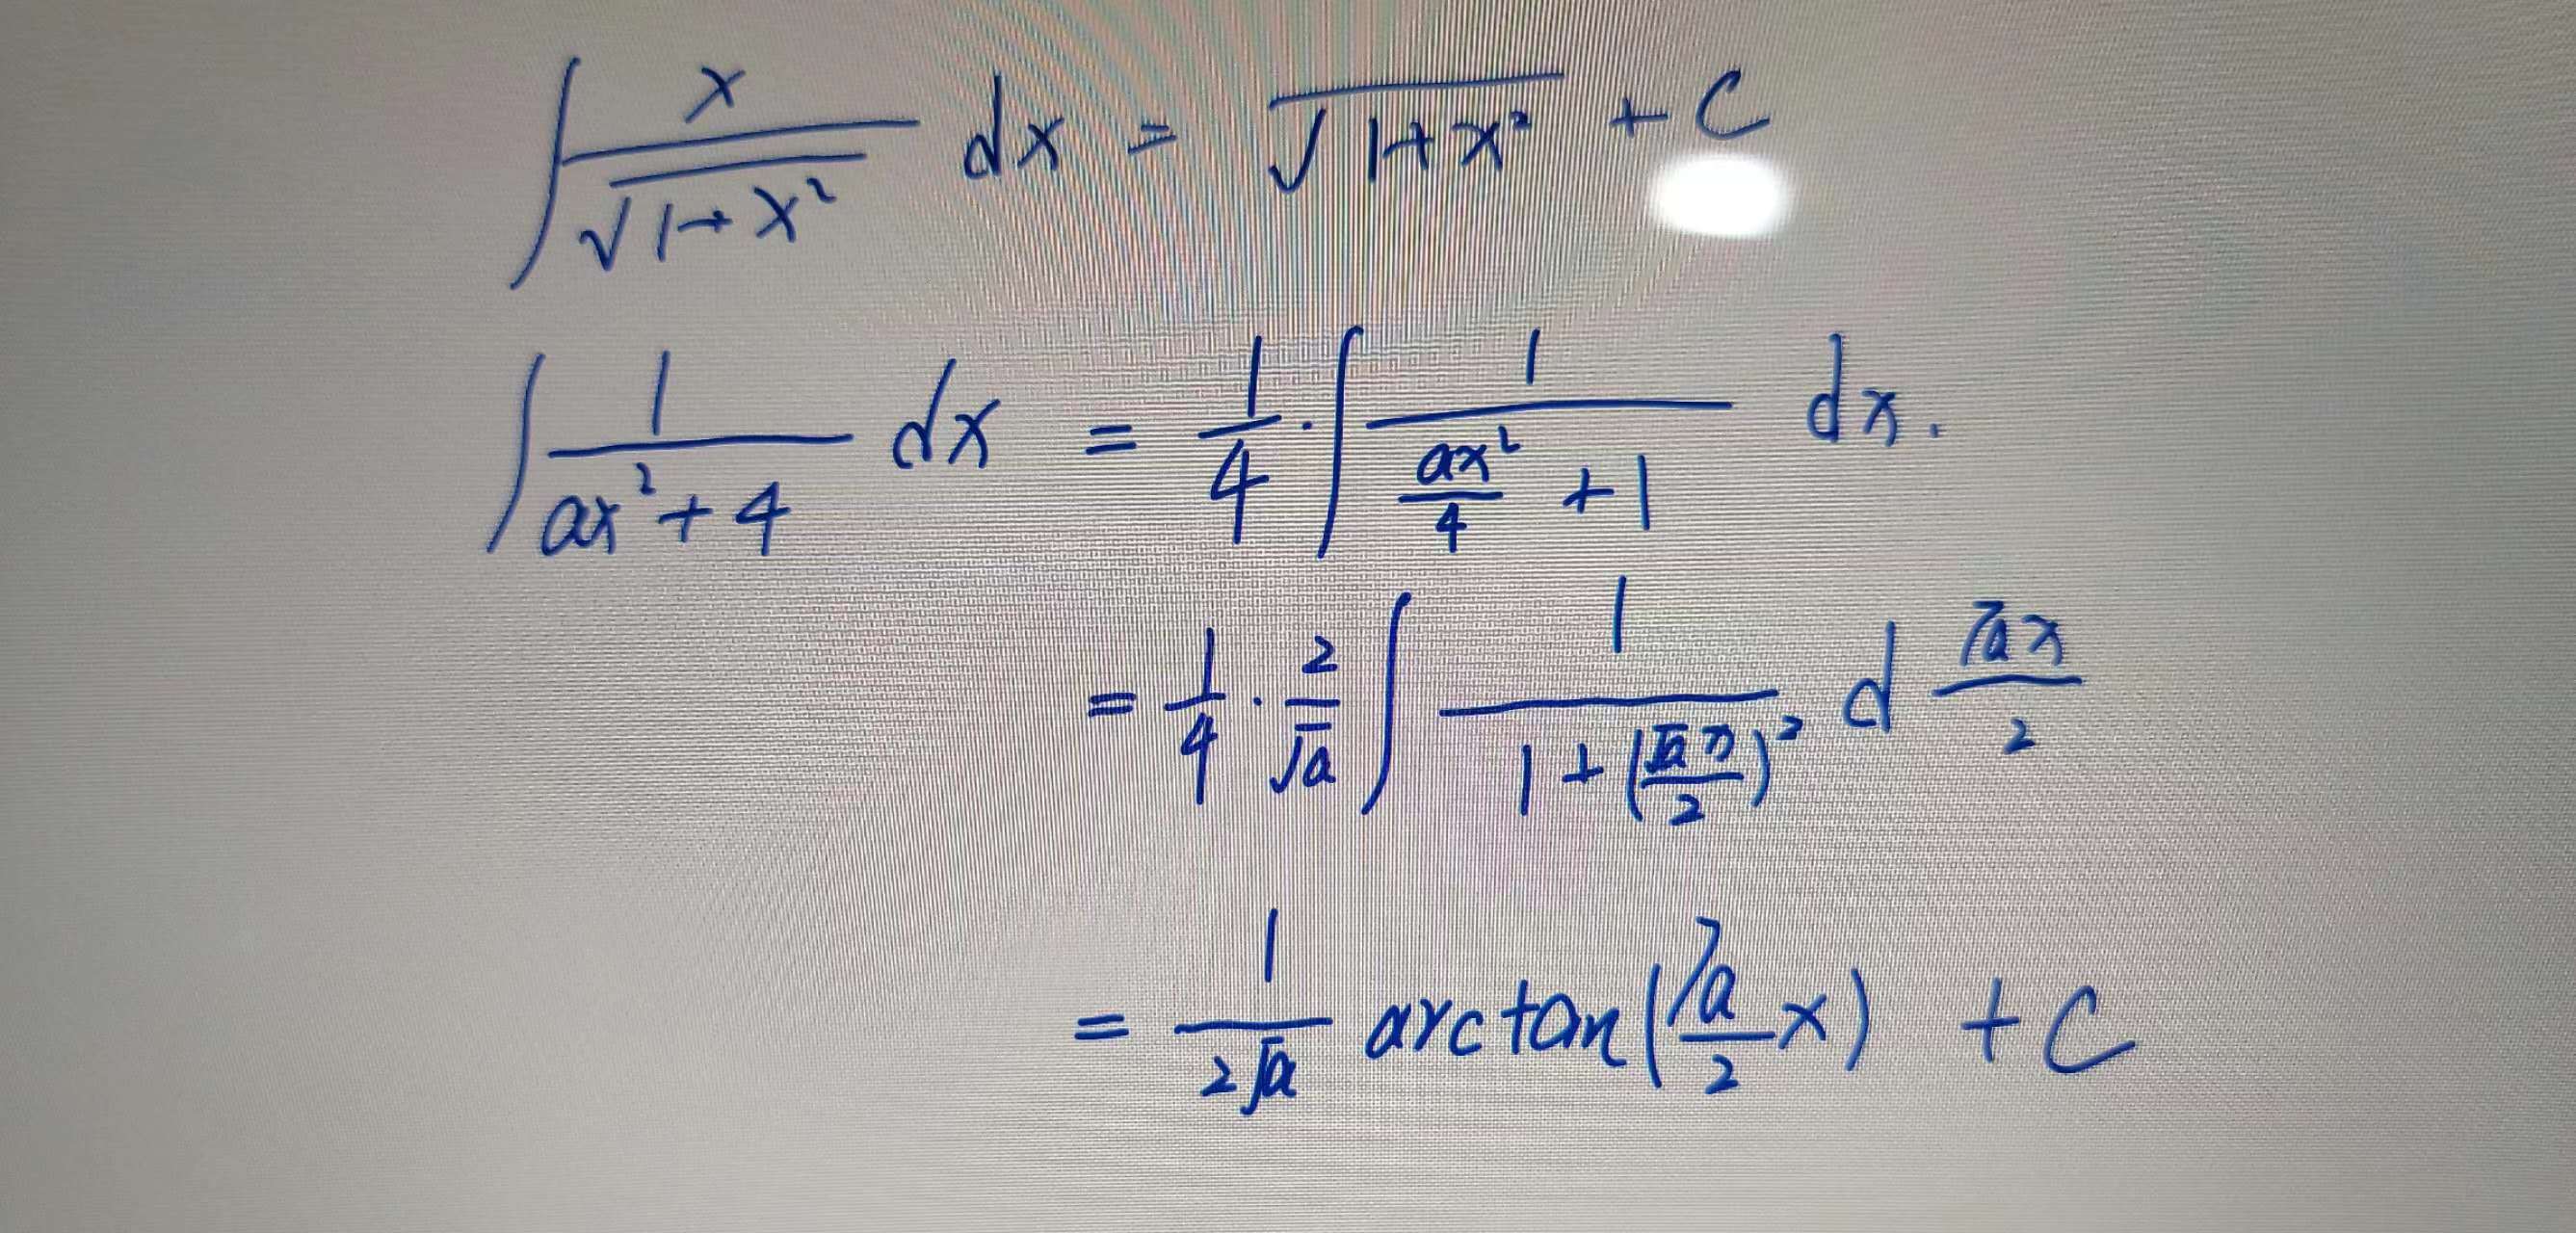 ∫ x/√(1+x²) dx = √(1+x²) + C
∫ 1/(ax²+4) dx = 1/4 · ∫ 1/(ax²/4 + 1) dx.
= 1/4 · 2/√a ∫ 1/(1+(√a x/2)²) d √a x/2
= 1/(2√a) arctan(√a/2 x) + C